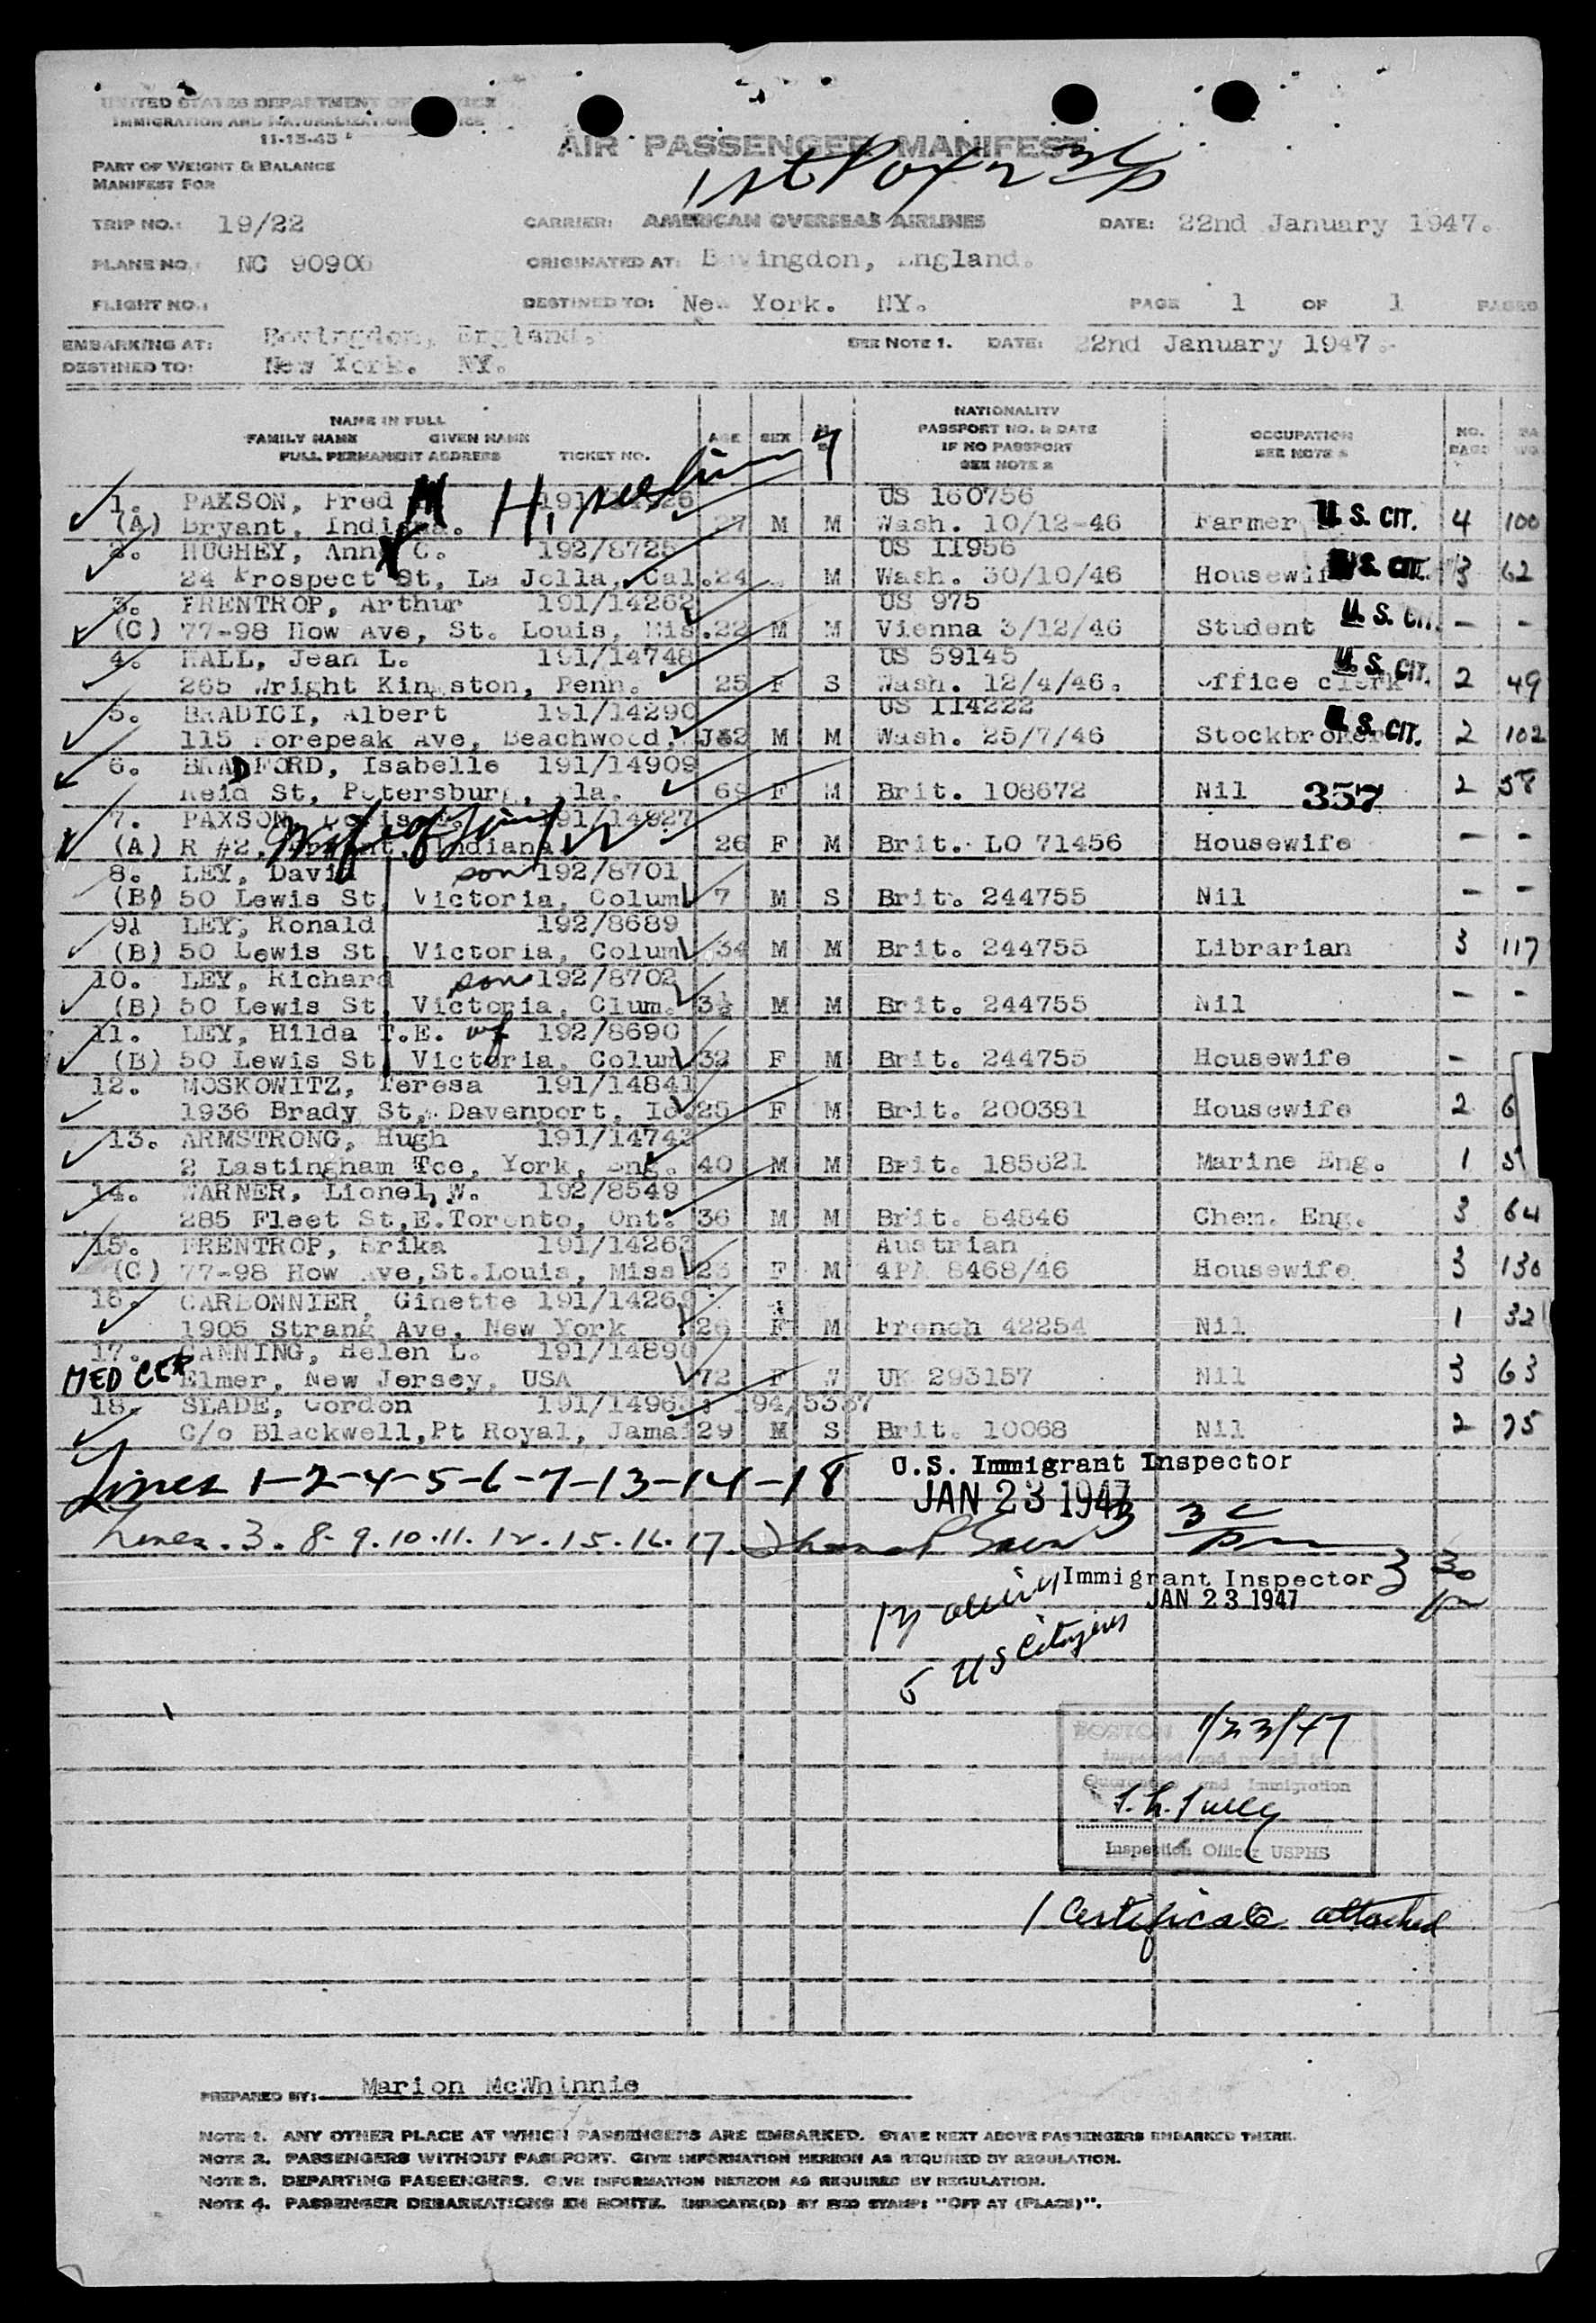 UNITED STATES DEPARTMENT OF JUSTICE
IMMIGRATION AND NATURALIZATION SERVICE
11-15-45
AIR PASSENGER MANIFEST
PART OF WEIGHT & BALANCE
MANIFEST FOR
TRIP NO.: 19/22 CARRIER: AMERICAN OVERSEAS AIRLINES DATE: 22nd January 1947.
PLANE NO.: NC 90906 ORIGINATED AT: Bovingdon, England.
FLIGHT NO.: DESTINED TO: New York. NY. PAGE 1 OF 1 PAGES
EMBARKING AT: Bovingdon, England. SEE NOTE 1. DATE: 22nd January 1947.
DESTINED TO: New York. NY.
NAME IN FULL
FAMILY NAME GIVEN NAME
FULL PERMANENT ADDRESS TICKET NO.
AGE SEX
NATIONALITY
PASSPORT NO. & DATE
IF NO PASSPORT
SEE NOTE 2
OCCUPATION
SEE NOTE 3
NO. BAGS
1. PAXSON, Fred M US 160756
(A) Bryant, Indiana. 27 M M Wash. 10/12-46 Farmer U.S. CIT. 4 100
2. HUGHEY, Ann C. 192/8725 US 11956
24 Prospect St, La Jolla, Cal. 24 M Wash. 30/10/46 Housewife U.S. CIT. 3 62
3. FRENTROP, Arthur 191/14262 US 975
(C) 77-98 How Ave, St. Louis, Mis. 22 M M Vienna 3/12/46 Student U.S. CIT. - -
4. HALL, Jean L. 191/14748 US 59145
265 Wright Kingston, Penn. 25 F S Wash. 12/4/46. Office clerk U.S. CIT. 2 49
5. BRADICI, Albert 191/14290 US 114222
115 Forepeak Ave, Beachwood, J 52 M M Wash. 25/7/46 Stockbroker U.S. CIT. 2 102
6. BRADFORD, Isabelle 191/14909
Reid St, Petersburg, Fla. 69 F M Brit. 108672 Nil 357 2 58
7. PAXSON, 191/14927
(A) R #2, Bryant, Indiana 26 F M Brit. LO 71456 Housewife - -
8. LEY, David son 192/8701
(B) 50 Lewis St, Victoria, Colum 7 M S Brit. 244755 Nil - -
9. LEY, Ronald 192/8689
(B) 50 Lewis St Victoria, Colum 34 M M Brit. 244755 Librarian 3 117
10. LEY, Richard son 192/8702
(B) 50 Lewis St Victoria, Clum. 3½ M M Brit. 244755 Nil - -
11. LEY, Hilda T.E. wf 192/8690
(B) 50 Lewis St Victoria, Colum 32 F M Brit. 244755 Housewife -
12. MOSKOWITZ, Teresa 191/14841
1936 Brady St, Davenport, Io. 25 F M Brit. 200381 Housewife 2 6
13. ARMSTRONG, Hugh 191/14743
2 Lastingham Tce, York, Eng. 40 M M Brit. 185621 Marine Eng. 1 5
14. WARNER, Lionel W. 192/8549
285 Fleet St, E. Toronto, Ont. 36 M M Brit. 84846 Chem. Eng. 3 64
15. FRENTROP, Erika 191/14263 Austrian
(C) 77-98 How Ave, St. Louis, Miss 23 F M 4PA 8468/46 Housewife 3 130
16. CARBONNIER, Ginette 191/14269
1905 Strang Ave, New York 26 F M French 42254 Nil 1 32
17. CANNING, Helen L. 191/14890
MED CER Elmer, New Jersey, USA 72 F W UK 293157 Nil 3 63
18. SLADE, Gordon 191/1496 194/5337
C/o Blackwell, Pt Royal, Jamai 29 M S Brit. 10068 Nil 2 75
Lines 1-2-4-5-6-7-13-14-18 U.S. Immigrant Inspector
JAN 23 1947
Lines. 3. 8. 9. 10. 11. 12. 15. 16. 17.
Immigrant Inspector
JAN 23 1947
13 aliens
5 US Citizens
BOSTON 1/23/47
Inspected and passed for
Quarantine and Immigration
Inspection Officer USPHS
1 Certificate attached
PREPARED BY: Marion McWhinnie
NOTE 1. ANY OTHER PLACE AT WHICH PASSENGERS ARE EMBARKED. STATE NEXT ABOVE PASSENGERS EMBARKED THERE.
NOTE 2. PASSENGERS WITHOUT PASSPORT. GIVE INFORMATION HEREON AS REQUIRED BY REGULATION.
NOTE 3. DEPARTING PASSENGERS. GIVE INFORMATION HEREON AS REQUIRED BY REGULATION.
NOTE 4. PASSENGER DEBARKATIONS EN ROUTE. INDICATE(D) BY RED STAMP: "OFF AT (PLACE)".